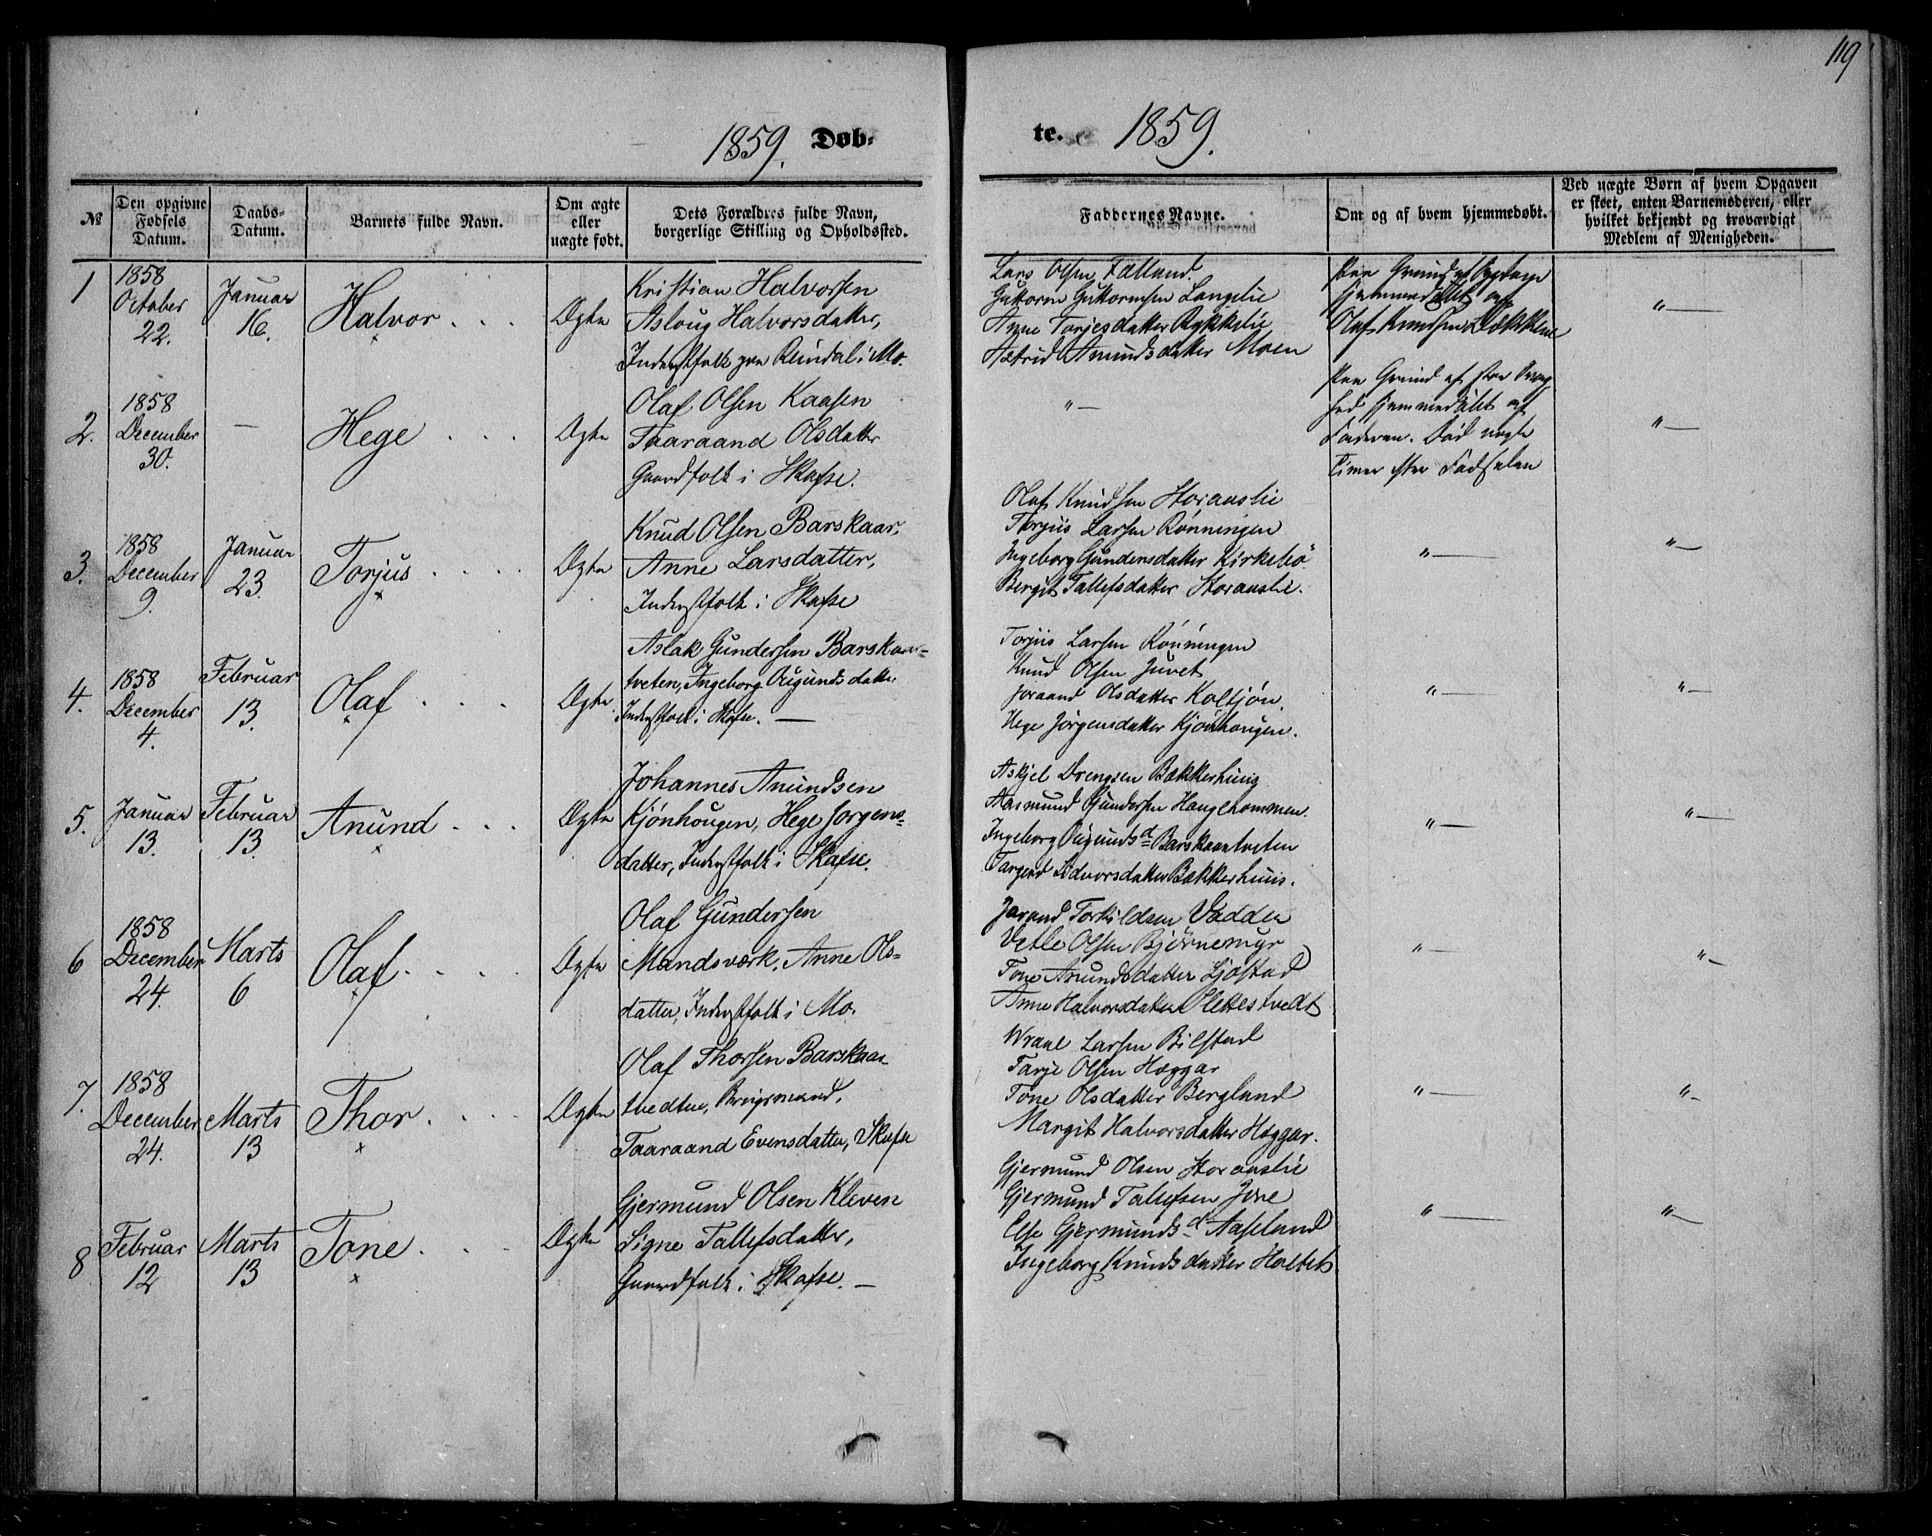 119
1859. Døb-
te. 1859.
№
Den opgivne Fødsels Datum.
Daabs-Datum.
Barnets fulde Navn.
Om ægte eller uægte født.
Dets Forældres fulde Navn, borgerlige Stilling og Opholdssted.
Faddernes Navne.
Om og af hvem hjemmedøbt.
Ved uægte Børn af hvem Opgaven er skeet, enten Barnemoderen, eller hvilket bekjendt og troværdigt Medlem af Menigheden.
1
1858 October 22.
Januar 16.
Halvor
Ægte
Kristian Halvorsen
Asloug Halvorsdatter,
Inderstfolk paa Reindal i Mo.
Lars Olsen Fælland.
Guttorm Guttormsen Langelie
Anne Torjesdatter Rykkelie
Astrid Amundsdatter Moen
Paa Grund af Sygdom
hjemmedøbt af
Olaf Knudsen
"—
2.
1858 December 30.
—
Hege
Ægte
Olaf Olsen Kaasen
Taaraand Olsdatter
Gaardfolk i Skafse.
"—
Paa Grund af stor Svag-
hed hjemmedøbt af
Faderen. Død nogle
Timer efter Fødselen
"—
3.
1858 December 9.
Januar 23.
Torjus
Ægte
Knud Olsen Barskaar,
Anne Larsdatter,
Inderstfolk i Skafse
Olaf Knudsen Storauslie
Torjus Larsen Rønningen
Ingeborg Gundersdatter Kirkebø
Bergit Tallefsdatter Storauslie.
"—
"—
4.
1858 December 4.
Februar 13.
Olaf
Ægte
Aslak Gundersen Barskaar-
tveten, Ingeborg Øigundsdatter
Inderstfolk i Skafse. —
Torjus Larsen Rønningen
Knud Olsen Juvet
Joraand Olsdatter Koltjøn.
Hege Jørgensdatter Kjønhougen.
"—
"—
5.
Januar 13.
Februar 13.
Anund
Ægte
Johannes Anundsen
Kjønhougen, Hege Jørgens-
datter, Inderstfolk i Skafse.
Askjel Drengsen Bækkerhuus
Aasmund Gundersen Haugehommen.
Ingeborg Øigunds d Barskaartveten
Targerd Advorsdatter Bækkerhuus.
"—
"—
6
1858 December 24.
Marts 6
Olaf
Ægte
Olaf Gundersen
Mandsværk, Anne Ols-
datter, Inderstfolk i Mo.
Jarand Torkildsen Vadder
Vetle Olsen Bjørnemyr
Tone Anundsdatter Ljøstad
Anne Halvorsdatter Slettestvedt
"—
"—
7.
1858 December 24.
Marts 13
Thor
Ægte
Olaf Thorsen Barskaar-
tvedten, Brugsmand,
Taaraand Evensdatter, Skafse
Wraal Larsen Bilstad
Tarje Olsen Heggar
Tone Olsdatter Bergland
Margit Halvorsdatter Heggar.
"—
"—
8
Februar 12
Marts 13
Tone
Ægte
Gjermund Olsen Kleven
Signe Tallefsdatter,
Gaardfolk i Skafse. —
Gjermund Olsen Storauslie
Gjermund Tallefsen Jore
Else Gjermunds d Aaseland
Ingeborg Knudsdatter Holtet
"—
"—